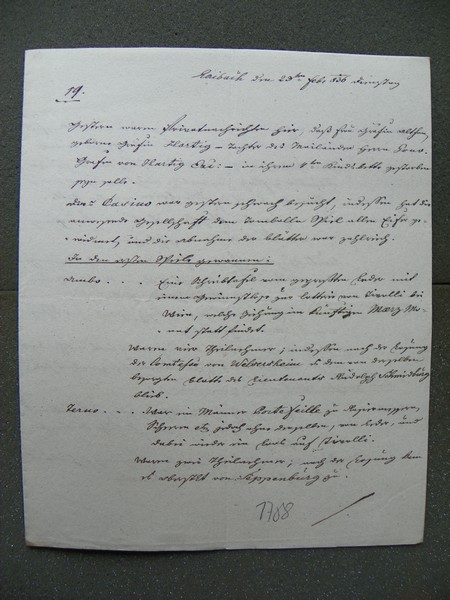 Laibach den 23ten Feb. 836 Dienstag
19.
Gestern waren Privatnachrichten hier, daß die Gräfin
geborne Gräfin Hartig – Tochter des Mailänder Herrn Gouv.
Grafen von Hartig Exc: – in ihrem 4ten Kindbette gestorben
seyn solle.
Das Casino war gestern schwach besucht, indessen hat die
anwesende Gesellschaft dem Tombella Spiel allen Eifer ge-
widmet, und die Abnahme der Blätter war zahlreich.
In dem ersten Spiele gewannen:
Ambo . . . Eine Schreibtafel von gepreßten Leder mit
einem Gewinnstlose zur Lotterie von Tivolli bei
Wien, welche Ziehung im künftigen März Mo-
nat statt findet.
Waren vier Theilnehmer; indessen nach der Losung
der Comtesse von Welsersheim es dem von derselben
besorgten Blatte des Lieutenants Rudolph
blieb.
Terno . . . War ein Männer Portefeuille zu Rasiermesser,
Scheeren etz jedoch ohne derselben, von Leder, und
dabei wieder ein Loos auf Tivolli.
Waren zwei Theilnehmer; nach der Losung kam
es Obristlt von Seppenburg zu.
1788